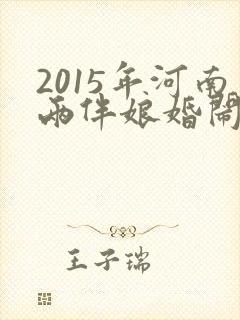 2015年河南
两伴娘婚闹
王子瑞